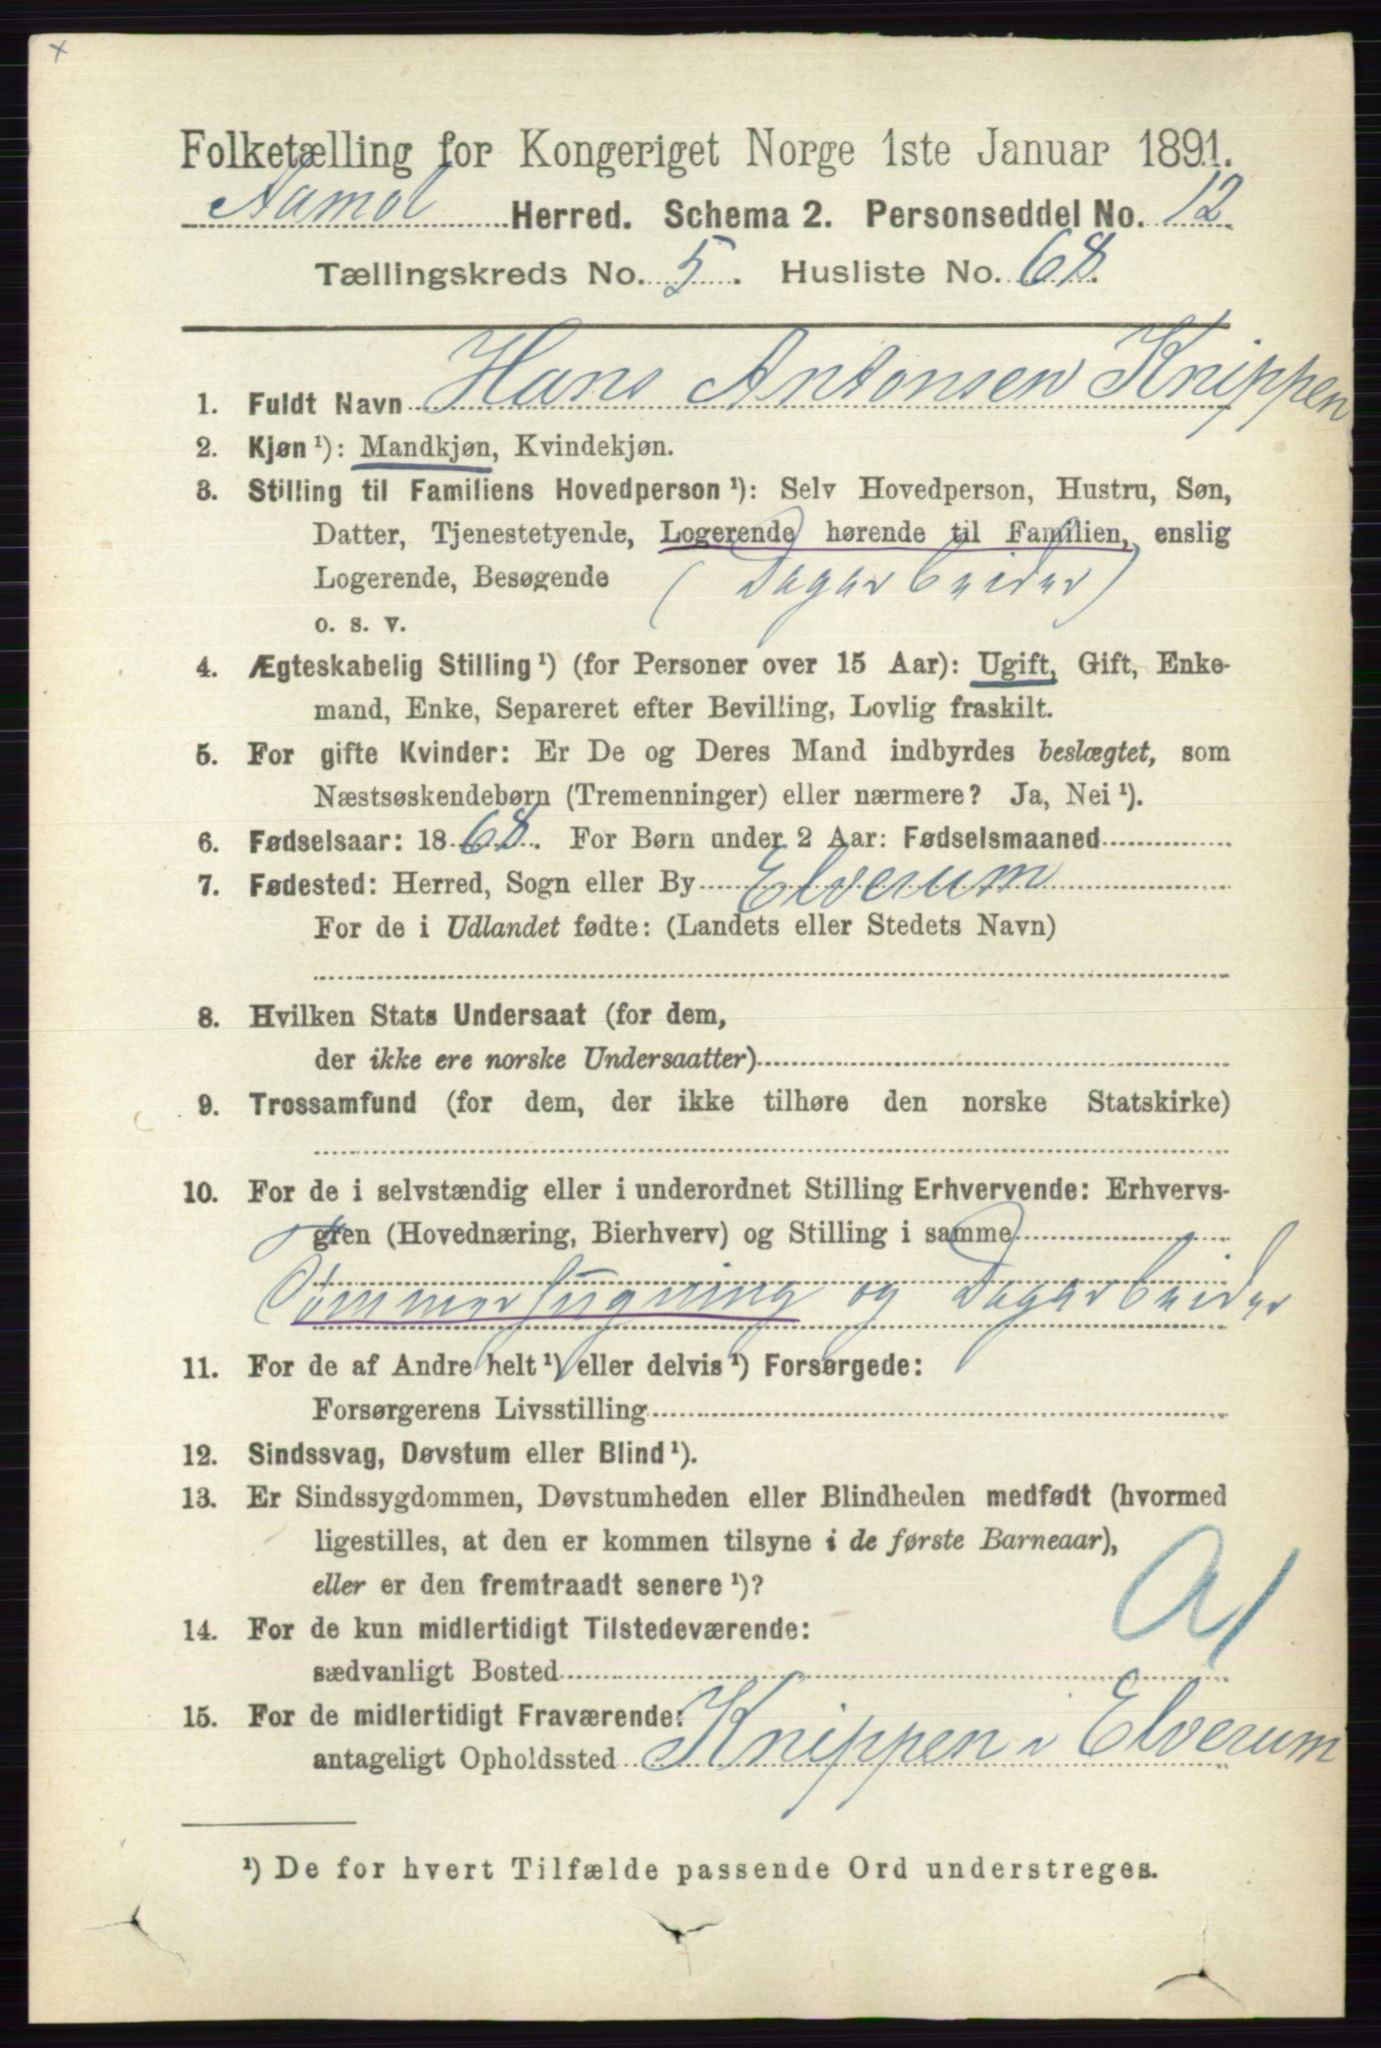 x
Folketælling for Kongeriget Norge 1ste Januar 1891.
Aamot Herred. Schema 2. Personseddel No. 12
Tællingskreds No. 5. Husliste No. 68.
1. Fuldt Navn Hans Antonsen Knippen
2. Kjøn¹): Mandkjøn, Kvindekjøn.
3. Stilling til Familiens Hovedperson¹): Selv Hovedperson, Hustru, Søn,
Datter, Tjenestetyende, Logerende hørende til Familien, enslig
Logerende, Besøgende (Dagarbeider)
o. s. v.
4. Ægteskabelig Stilling¹) (for Personer over 15 Aar): Ugift, Gift, Enke-
mand, Enke, Separeret efter Bevilling, Lovlig fraskilt.
5. For gifte Kvinder: Er De og Deres Mand indbyrdes beslægtet, som
Næstsøskendebørn (Tremenninger) eller nærmere? Ja, Nei¹).
6. Fødselsaar: 1868. For Børn under 2 Aar: Fødselsmaaned
7. Fødested: Herred, Sogn eller By Elverum
For de i Udlandet fødte: (Landets eller Stedets Navn)
8. Hvilken Stats Undersaat (for dem,
der ikke ere norske Undersaatter)
9. Trossamfund (for dem, der ikke tilhøre den norske Statskirke)
10. For de i selvstændig eller i underordnet Stilling Erhvervende: Erhvervs-
gren (Hovednæring, Bierhverv) og Stilling i samme
Tømmerhugning og Dagarbeider
11. For de af Andre helt¹) eller delvis¹) Forsørgede:
Forsørgerens Livsstilling
12. Sindssvag, Døvstum eller Blind¹).
13. Er Sindssygdommen, Døvstumheden eller Blindheden medfødt (hvormed
ligestilles, at den er kommen tilsyne i de første Barneaar),
eller er den fremtraadt senere¹)?
14. For de kun midlertidigt Tilstedeværende:
sædvanligt Bosted
15. For de midlertidigt Fraværende:
antageligt Opholdssted Knippen i Elverum
¹) De for hvert Tilfælde passende Ord understreges.